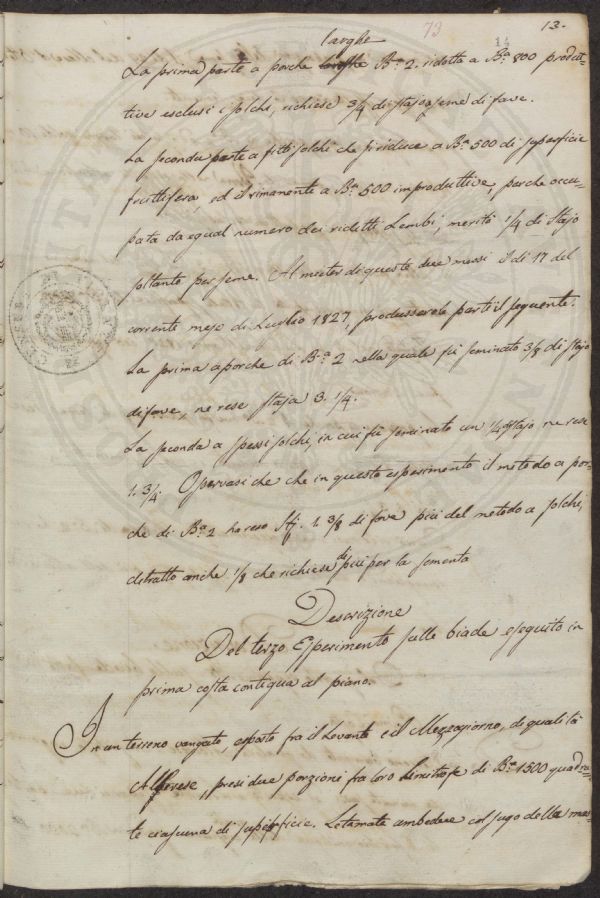 73 13.
14
larghe
La prima parte a porche larghe B.ª 2. ridotta a B.ª 800 produt-
tive esclusi i solchi, richiese 3/4 di stajo a seme di fave.
La seconda parte a fitti solchi che si riduce a B.ª 500 di superficie
fruttifera, ed il rimanente a B.ª 500 improduttive perche occu-
pata da egual numero dei ridetti Lembi, meritò 1/4 di Stajo
soltanto per seme. Al mieter di queste due messi il di 17 del
corrente mese di Luglio 1827, produssero le parti il seguente.
La prima a porche di B.ª 2 nella quale fù seminato 3/8 di stajo
di fave, ne rese staja 3. 1/4.
La seconda a spessi solchi, in cui fù seminato un 1/4 di stajo ne rese
1. 3/4. Osservasi che che in questo esperimento il metodo a por-
che di B.ª 2 ha reso St. 1. 3/8 di fave più del metodo a solchi,
detratto anche 1/8 che richiese di più per la sementa
Descrizione
Del terzo Esperimento sulle biade eseguito in
prima costa contigua al piano.
In un terreno vangato, esposto fra il Levante e il Mezzogiorno, di qualità
Alberese, presi due porzioni fra loro limitrofe di B.ª 1500 quadra-
te ciascuna di superficie. Letamate ambedue col sugo della mas-